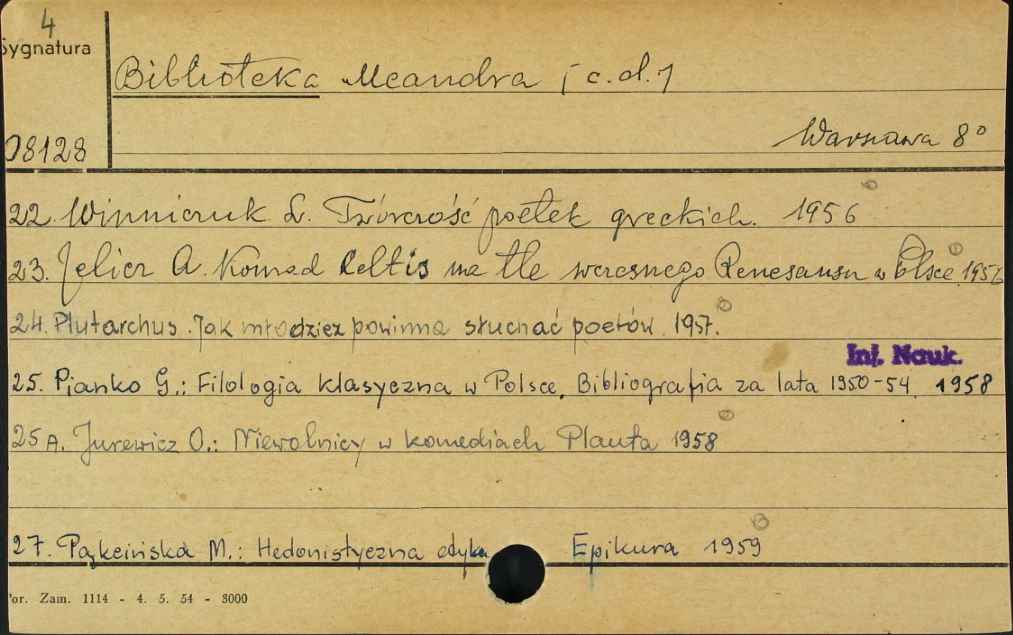 4
Sygnatura
Biblioteka Meandra [c.d.]
Warszawa 8°
08128
22. Winniczuk L. Twórczość poetek greckich. 1956
23. Jelicz A. Konrad Celtis na tle wczesnego Renesansu w Polsce 1956
24. Plutarchus. Jak młodzież powinna słuchać poetów 1957.
Inf. Nauk.
25. Pianko G.: Filologia klasyczna w Polsce. Bibliografia za lata 1950-54. 1958
25A. Jurewicz O.: Niewolnicy w komediach Plauta 1958
27. Pąkcińska M.: Hedonistyczna etyka Epikura 1959
Por. Zam. 1114 - 4. 5. 54 - 3000